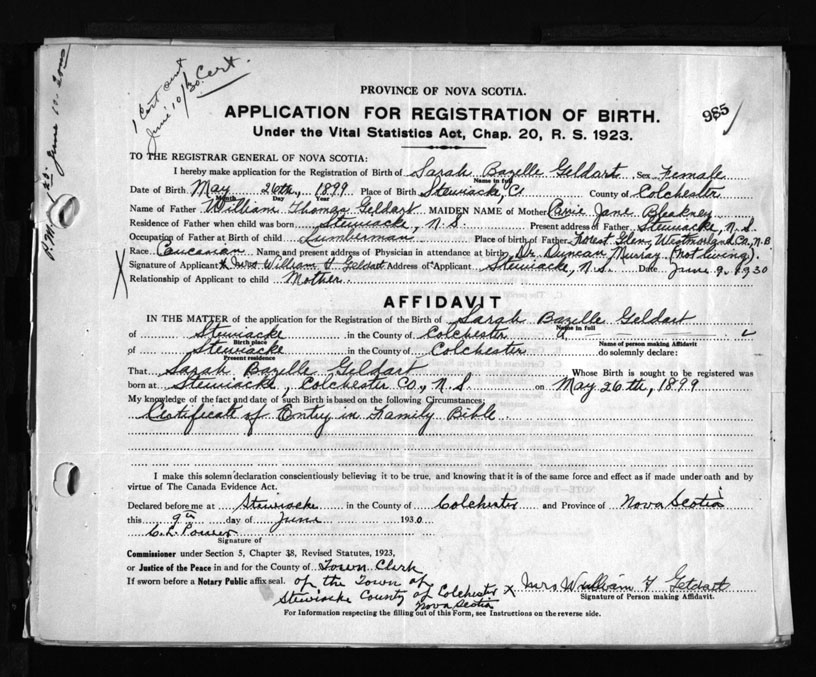 1 Cert sent
June 10/30
Cert.
PROVINCE OF NOVA SCOTIA.
985
APPLICATION FOR REGISTRATION OF BIRTH.
Under the Vital Statistics Act, Chap. 20, R. S. 1923.
TO THE REGISTRAR GENERAL OF NOVA SCOTIA:
I hereby make application for the Registration of Birth of Sarah Bazelle Geldart Sex Female
Name in full
Date of Birth May 26th, 1899 Place of Birth Stewiacke, Co County of Colchester
Month Day Year
Name of Father William Thomas Geldart MAIDEN NAME of Mother Jane Bleakney
Residence of Father when child was born Stewiacke, N.S. Present address of Father Stewiacke, N.S.
Occupation of Father at Birth of child Lumberman Place of birth of Father Forest Glen, Westmorland Co., N.B.
Race Caucasian Name and present address of Physician in attendance at birth Dr. Duncan Murray (not living).
Signature of Applicant X Mrs William T Geldart Address of Applicant Stewiacke, N.S. Date June 9, 1930
X Relationship of Applicant to child Mother
AFFIDAVIT
IN THE MATTER of the application for the Registration of the Birth of Sarah Bazelle Geldart
Name in full
of Stewiacke in the County of Colchester
Birth place Name of person making Affidavit
of Stewiacke in the County of Colchester do solemnly declare:
Present residence
That Sarah Bazelle Geldart Whose Birth is sought to be registered was
born at Stewiacke, Colchester Co., N.S. on May 26th, 1899
My knowledge of the fact and date of such Birth is based on the following Circumstances:
Certificate of Entry in Family Bible
I make this solemn declaration conscientiously believing it to be true, and knowing that it is of the same force and effect as if made under oath and by
virtue of The Canada Evidence Act.
Declared before me at Stewiacke in the County of Colchester and Province of Nova Scotia
this 9th day of June 1930.
C. L. Power
Signature of
Commissioner under Section 5, Chapter 38, Revised Statutes, 1923,
or Justice of the Peace in and for the County of Town Clerk
If sworn before a Notary Public affix seal. of the Town of
Stewiacke County of Colchester X Mrs William T Geldart
Nova Scotia Signature of Person making Affidavit.
For Information respecting the filling out of this Form, see Instructions on the reverse side.